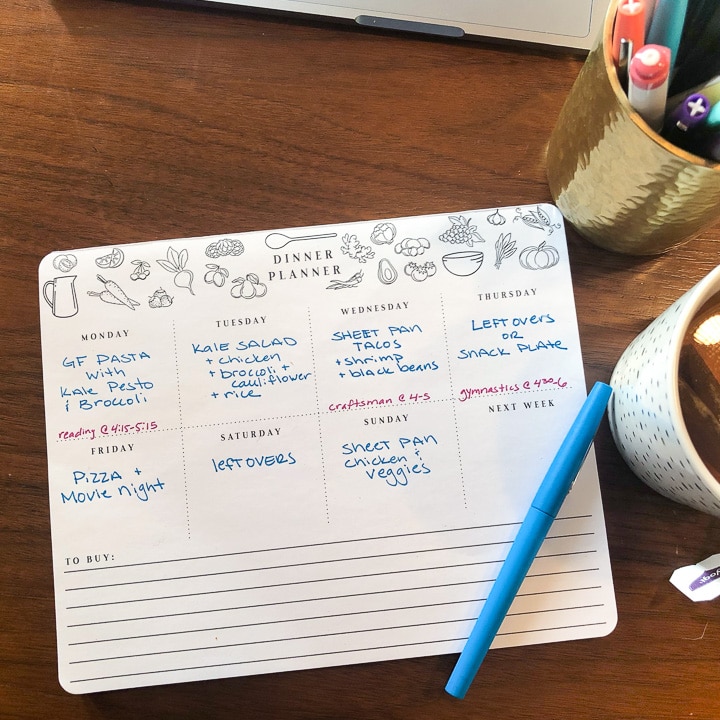 DINNER
PLANNER
MONDAY
GF PASTA
with
Kale Pesto
& Broccoli
reading @ 4:15-5:15
TUESDAY
Kale SALAD
+ chicken
+ broccoli +
cauliflower
+ rice
WEDNESDAY
SHEET PAN
TACOS
+ shrimp
+ black beans
craftsman @ 4-5
THURSDAY
LEFTOVERS
OR
SNACK PLATE
gymnastics @ 4:30-6
FRIDAY
PIZZA +
Movie Night
SATURDAY
LEFTOVERS
SUNDAY
SHEET PAN
chicken &
veggies
NEXT WEEK
TO BUY: